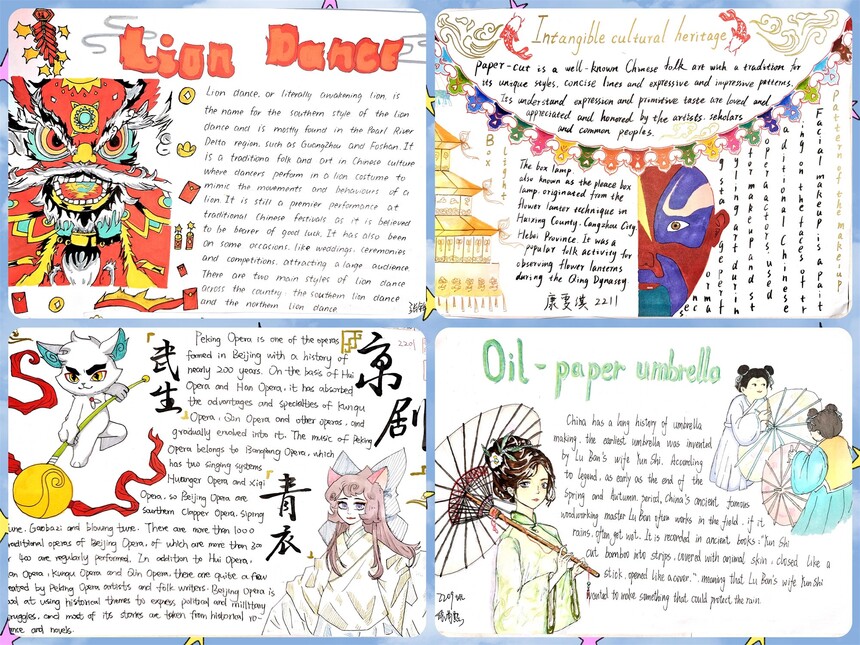 Lion Dance
Lion dance, or literally awakening lion, is
the name for the southern style of the lion
dance and is mostly found in the Pearl River
Delta region, such as Guangzhou and Foshan. It
is a traditiona folk and art in Chinese culture
where dancers perform in a lion costume to
mimic the movements and behaviours of a
lion. It is still a premiere performance at
traditional Chinese festivals as it is believed
to be bearer of good luck. It has also been
on some occasions, like weddings, ceremonies
and competitions, attracting a large audience.
There are two main styles of lion dance
across the country: the southern lion dance
and the northern lion dance.
Intangible cultural heritage
Paper-cut is a well-known Chinese folk art with a tradition for
its unique styles, concise lines and expressive and impressive patterns.
Its understand expression and primitive taste are loved and
appreciated and honored by the artists, scholars
and common peoples.
Box light
The box lamp,
also known as the pleace box
lamp, originated from the
flower lantor technique in
Haixing County, Cangzhou City,
Hebei Province. It was a
popular folk activity for
observing flower lanterns
during the Qing Dynasty
2211
pattern of the makeup
Facial makeup is a pait
ing on the faces of tr
aditional Chinese
opera actors, used
武生
京剧
2201
Peking Opera is one of the operas
formed in Beijing with a history of
nearly 200 years. On the basis of Hui
Opera and Han Opera, it has absorbed
the advantages and specialties of kunqu
Opera, Qin Opera and other operas, and
gradually evolved into it. The music of Peking
Opera belongs to Bangqiang Opera, which
has two singing systems
Huanger Opera and xiqi
Opera, so Beijing Opera are
sauthern Clapper Opera, Siping
tune, Gaobazi and blowing tune. There are more than 1000
traditional operas of Beijing Opera, of which are more than 300
or 400 are regularly performed. In addition to Hui Opera,
Han Opera, kunqu Opera and Qin Opera, there are quite a few
created by Peking Opera artists and folk writers. Beijing Opera is
good at using historical themes to express political and millitary
struggles, and most of its stories are taken from historical ro-
mance and novels.
青衣
Oil-paper umbrella
China has a long history of umbrella
making, the earliest umbrella was invented
by Lu Ban's wife Yun Shi. According
to legend, as early as the end of the
Spring and Autumn period, China's ancient famous
woodworking master Lu Ban often works in the field, if it
rains, often get wet. It is recorded in ancient books: "Yun Shi
cut bamboo into strips, covered with animal skin, closed like a
stick, opened like a cover.", meaning that Lu Ban's wife Yun Shi
wanted to make something that could protect the rain.